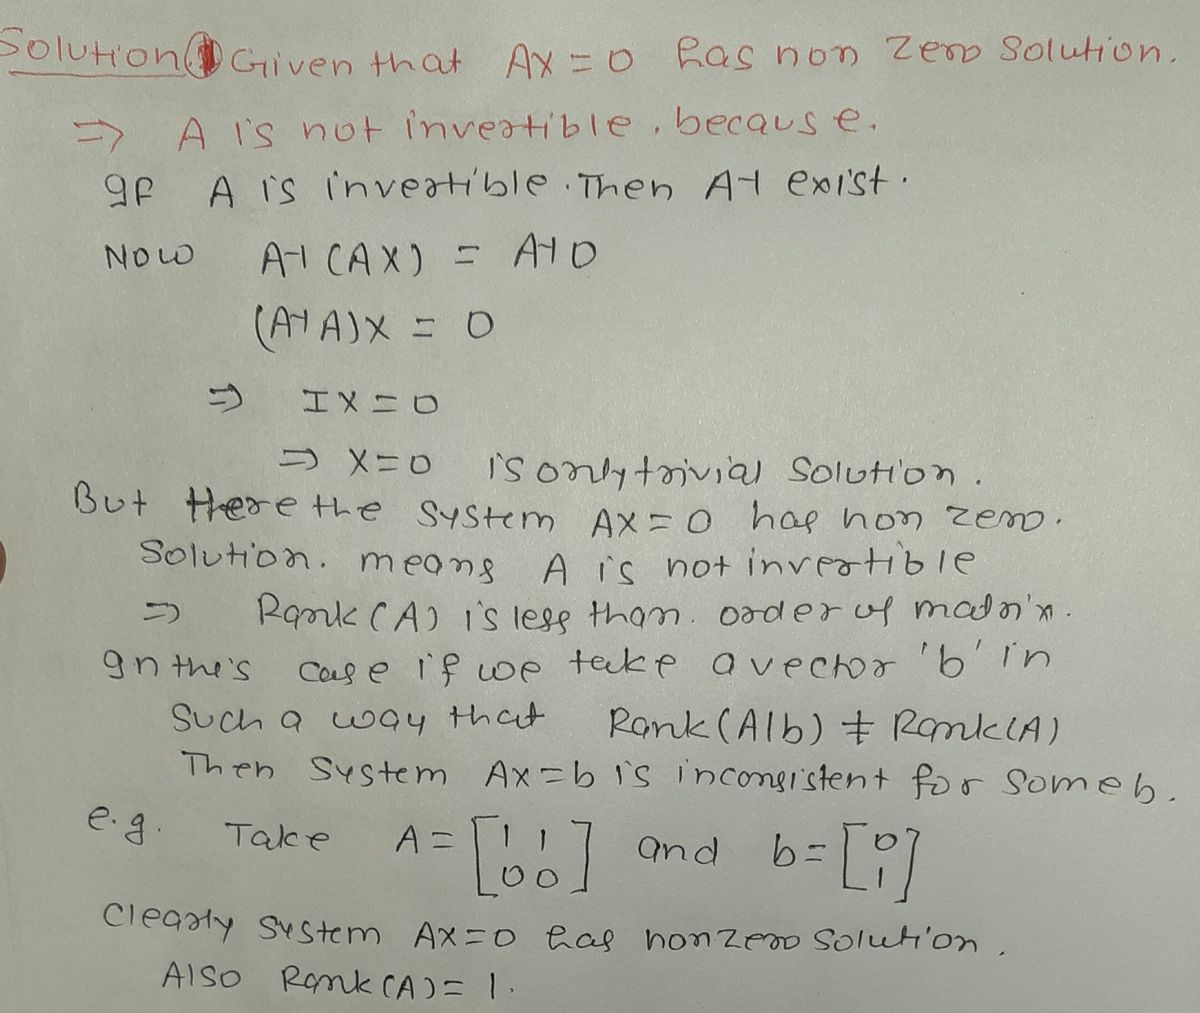 Solution ① Given that AX = 0 has non zero solution.
⇒ A is not invertible, because.
If A is invertible. Then A-1 exist.
Now A-1 (AX) = A-1 0
(A-1 A)X = 0
⇒ IX = 0
⇒ X=0 is only trivial solution.
But Here the system AX = 0 has non zero.
solution. means A is not invertible
⇒ Rank (A) is less than. order of matrix.
In this case if we take a vector 'b' in
such a way that Rank (A|b) ≠ Rank(A)
Then system Ax=b is inconsistent for some b.
e.g. Take A = [1 1; 0 0] and b = [0; 1]
Clearly system AX=0 has nonzero solution.
Also Rank (A) = 1.